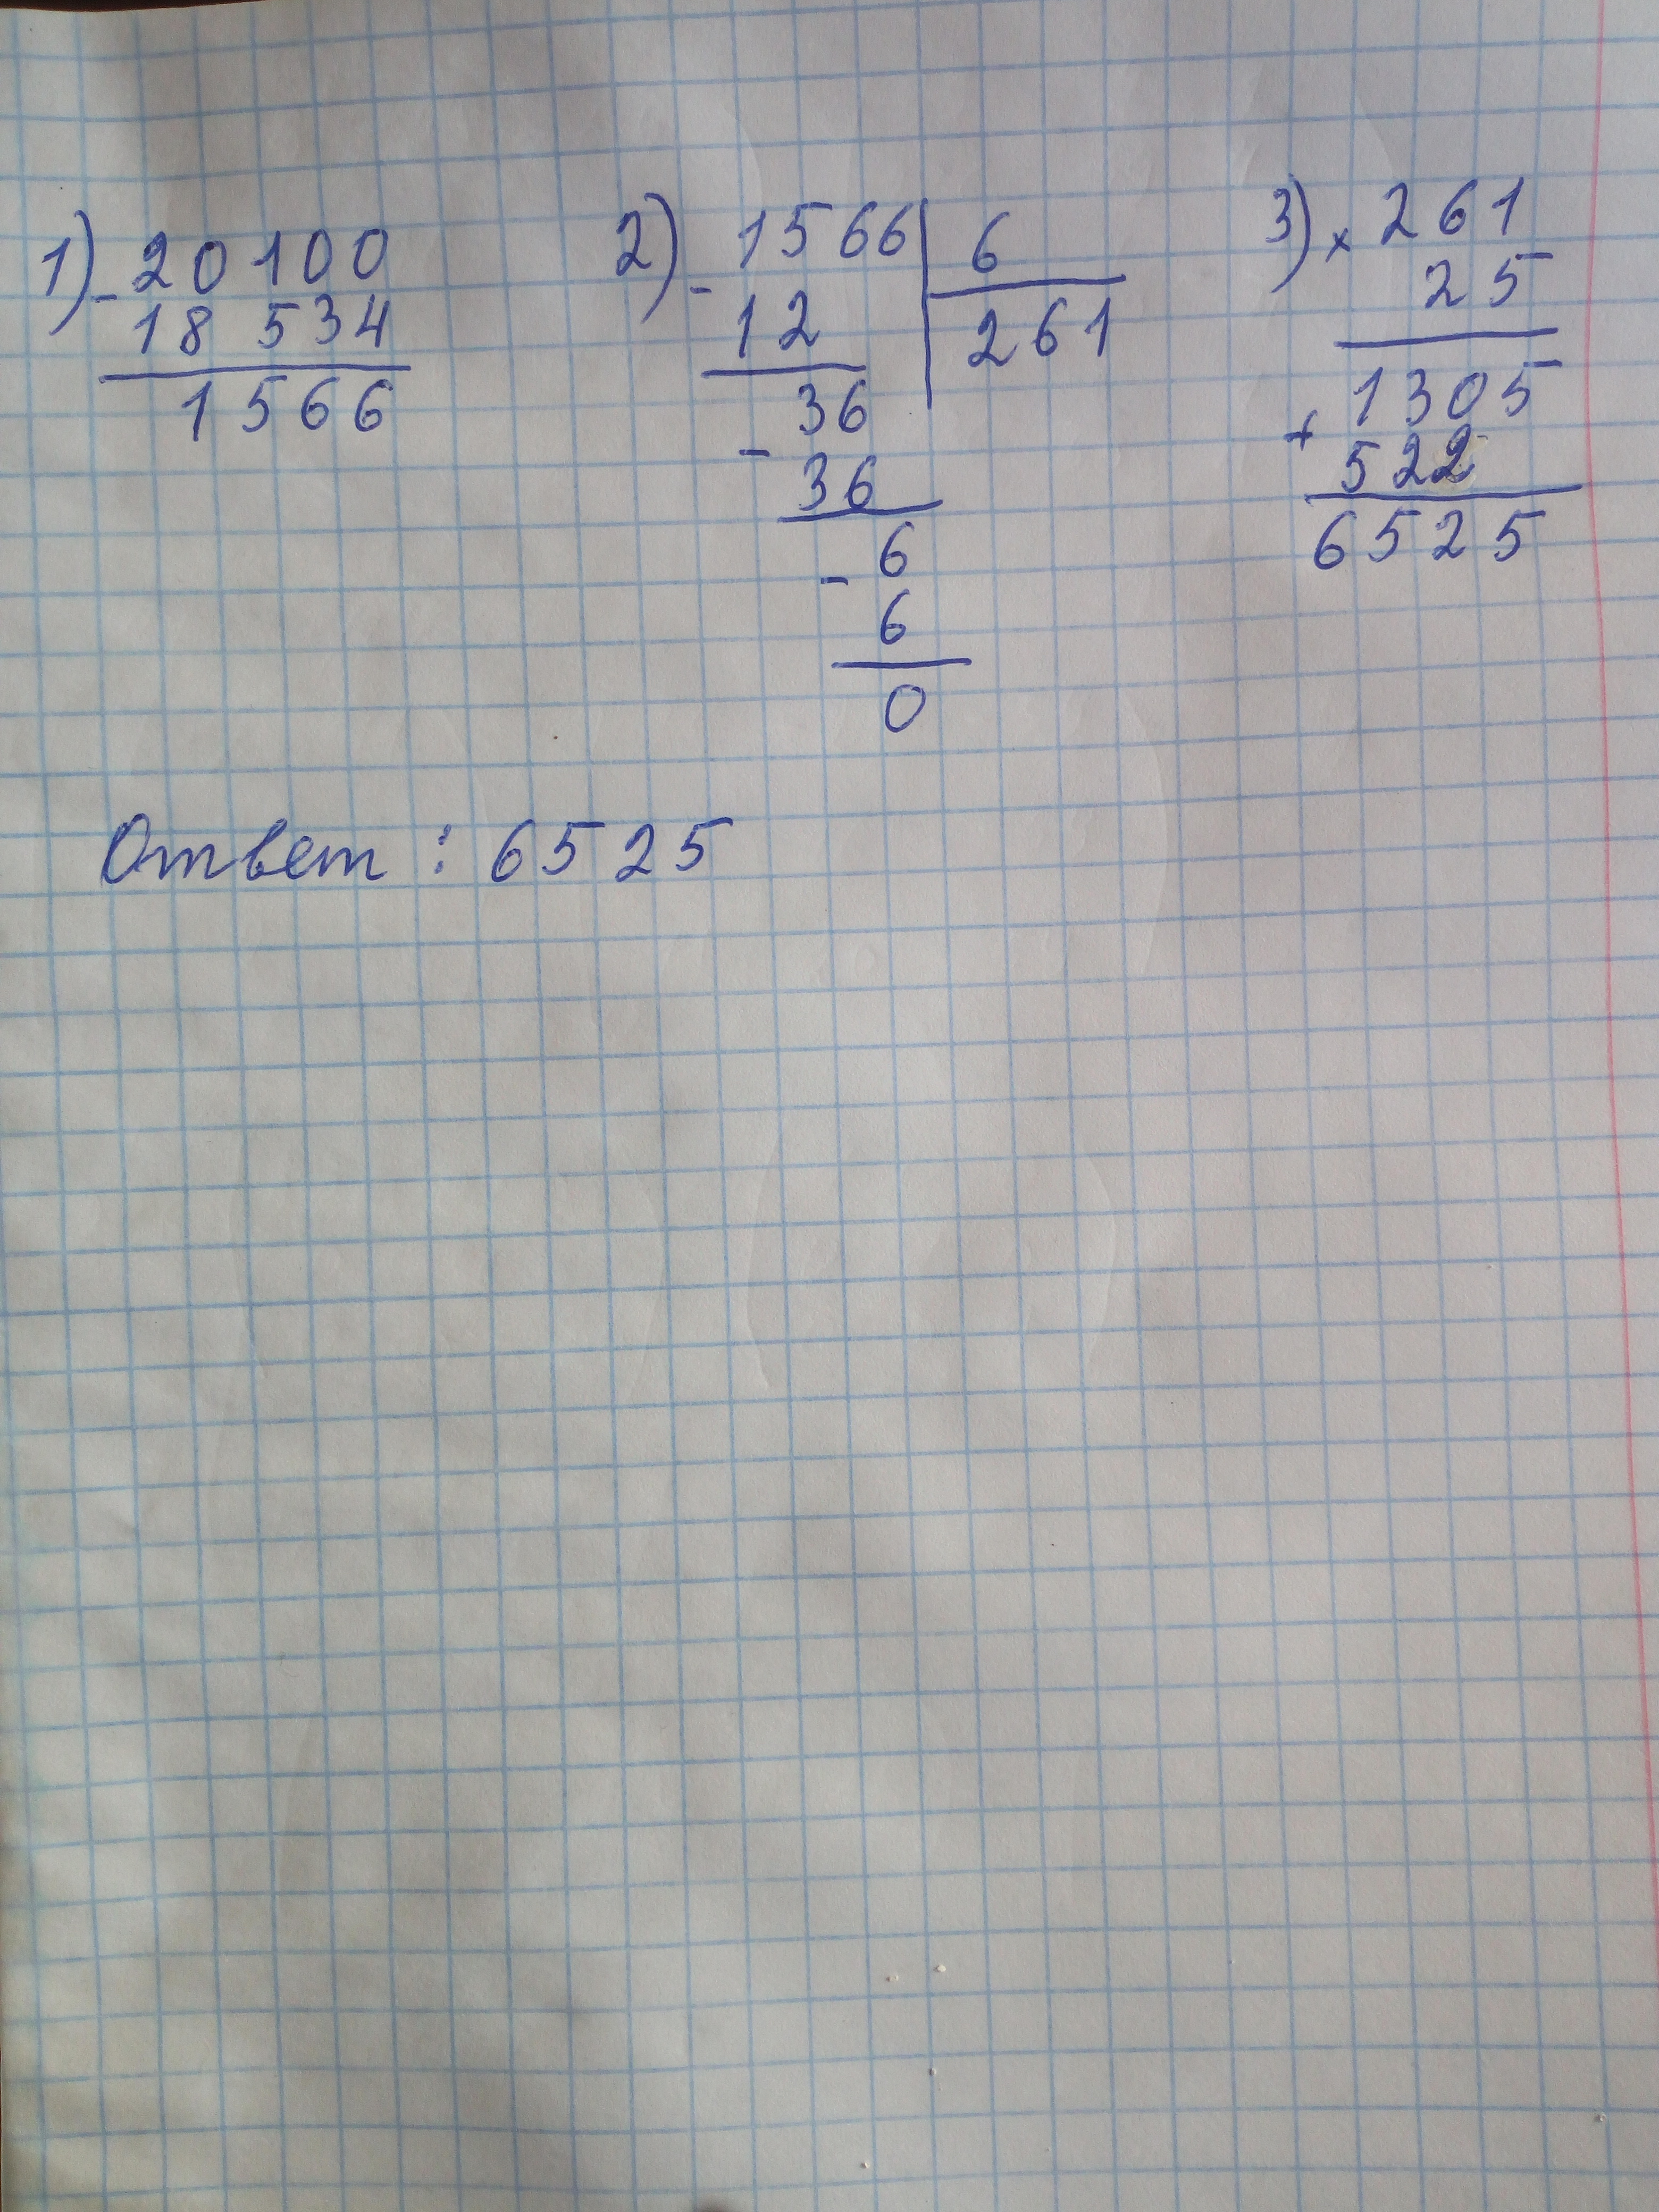 1) - 20 100
18 534
1566
2) - 1566 | 6
12
261
36
- 36
6
- 6
0
3) × 261
25
1305
+ 522
6525
Ответ : 6525